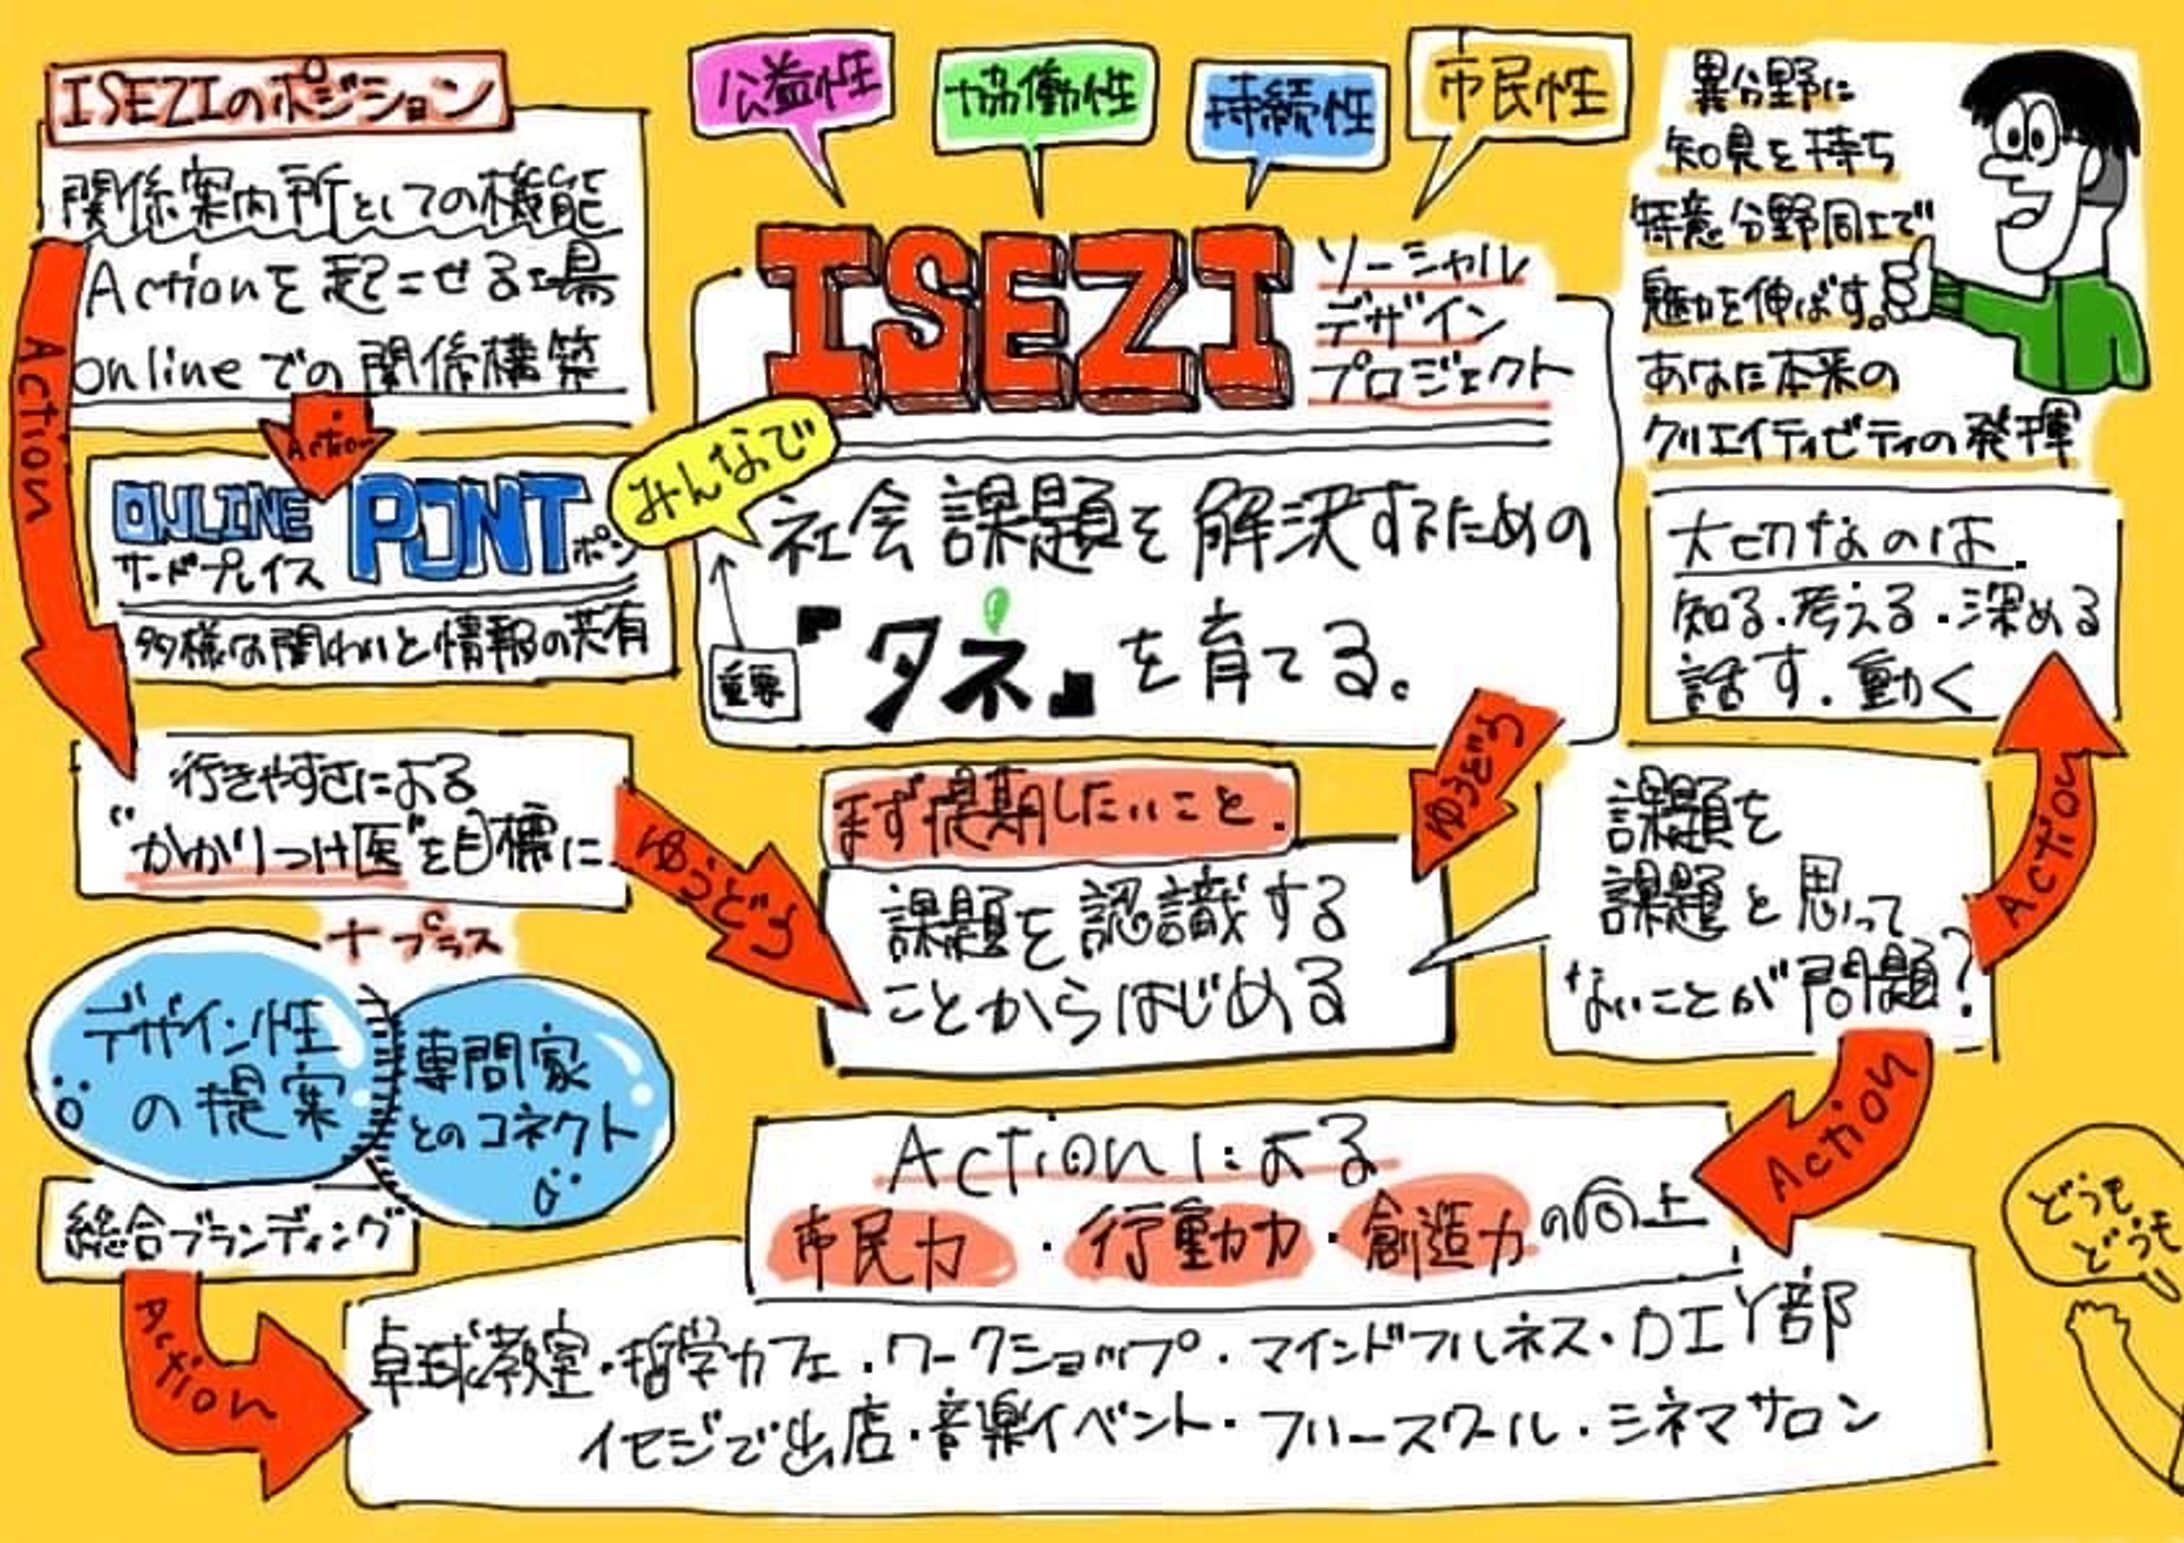 ISEZIのポジション
関係案内所としての機能
Actionを起こせる場
onlineでの関係構築
Action
Action
ONLINE
サードプレイス
PONT
ポン
多様な関わりと情報の共有
行きやすさによる
"かかりつけ医"を目標に
ゆうどう
+プラス
デザイン性
の提案
専門家
とのコネクト
総合ブランディング
Action
公益性
協働性
持続性
市民性
ISEZI
ソーシャル
デザイン
プロジェクト
みんなで
社会課題を解決するための
『タネ』を育てる。
重要
ゆうどう
まず提期したいこと.
課題を認識する
ことからはじめる
異分野に
知見を持ち
得意分野同士で
魅力を伸ばす。
あなた本来の
クリエイティビティの発揮
大切なのは.
知る・考える・深める
話す.動く
Action
課題を
課題と思って
ないことが問題?
Action
Actionによる
市民力・行動力・創造力の向上
卓球教室・哲学カフェ・ワークショップ・マインドフルネス・DIY部
イセジで出店・音楽イベント・フリースクール・シネマサロン
どうも
どうも